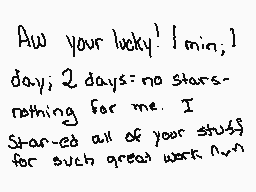 Aw your lucky! 1 min, 1
day; 2 days = no stars-
nothing for me. I
Star-ed all of your stuff
for such great work n_n